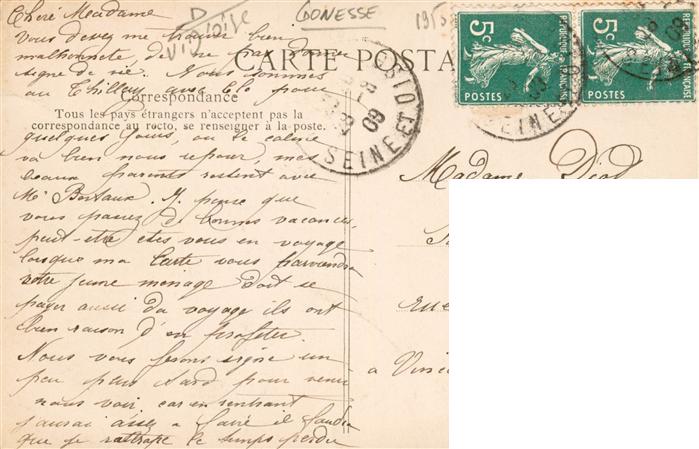 D
VIOLOISE
GONESSE
Cheré Madame
Vous devez me trouver bien
malhonnete de ne pas donner
signe de vie. Nous sommes
au Thillay avec Clo pour
CARTE POSTA
Correspondance
Tous les pays étrangers n'acceptent pas la
correspondance au recto, se renseigner à la poste.
quelques jours, ou le calme
va bien nous reposer, mes
beaux parents restent avec
Mr. Je pense que
vous passez de bonnes vacances,
peut-etre etes vous en voyage
lorsque ma Carte vous parviendra
votre jeune menage doit se
payer aussi du voyage ils ont
bien raison d'en profiter.
Nous vous ferons signe un
peu plus tard pour venir
nous voir, car en rentrant
j'aurai assez a faire il faudra
que je rattrape le temps perdu
5c
POSTES
5c
POSTES
09
SEINE ET OIS
SEINE E
09
Madame Diod
rue
a Vince